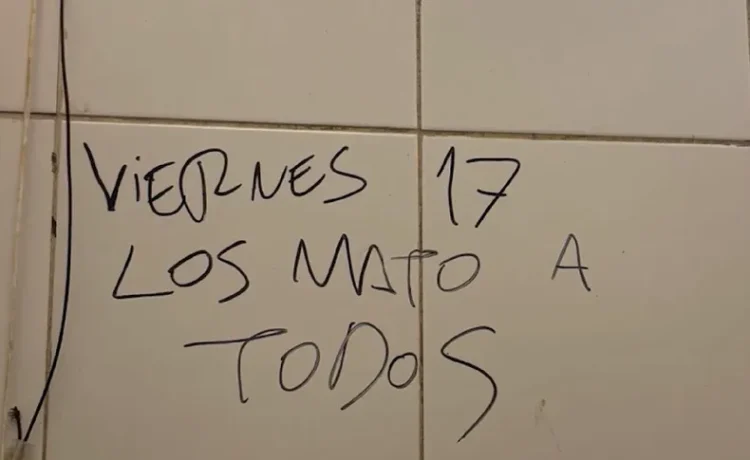 VIERNES 17
LOS MATO A
TODOS